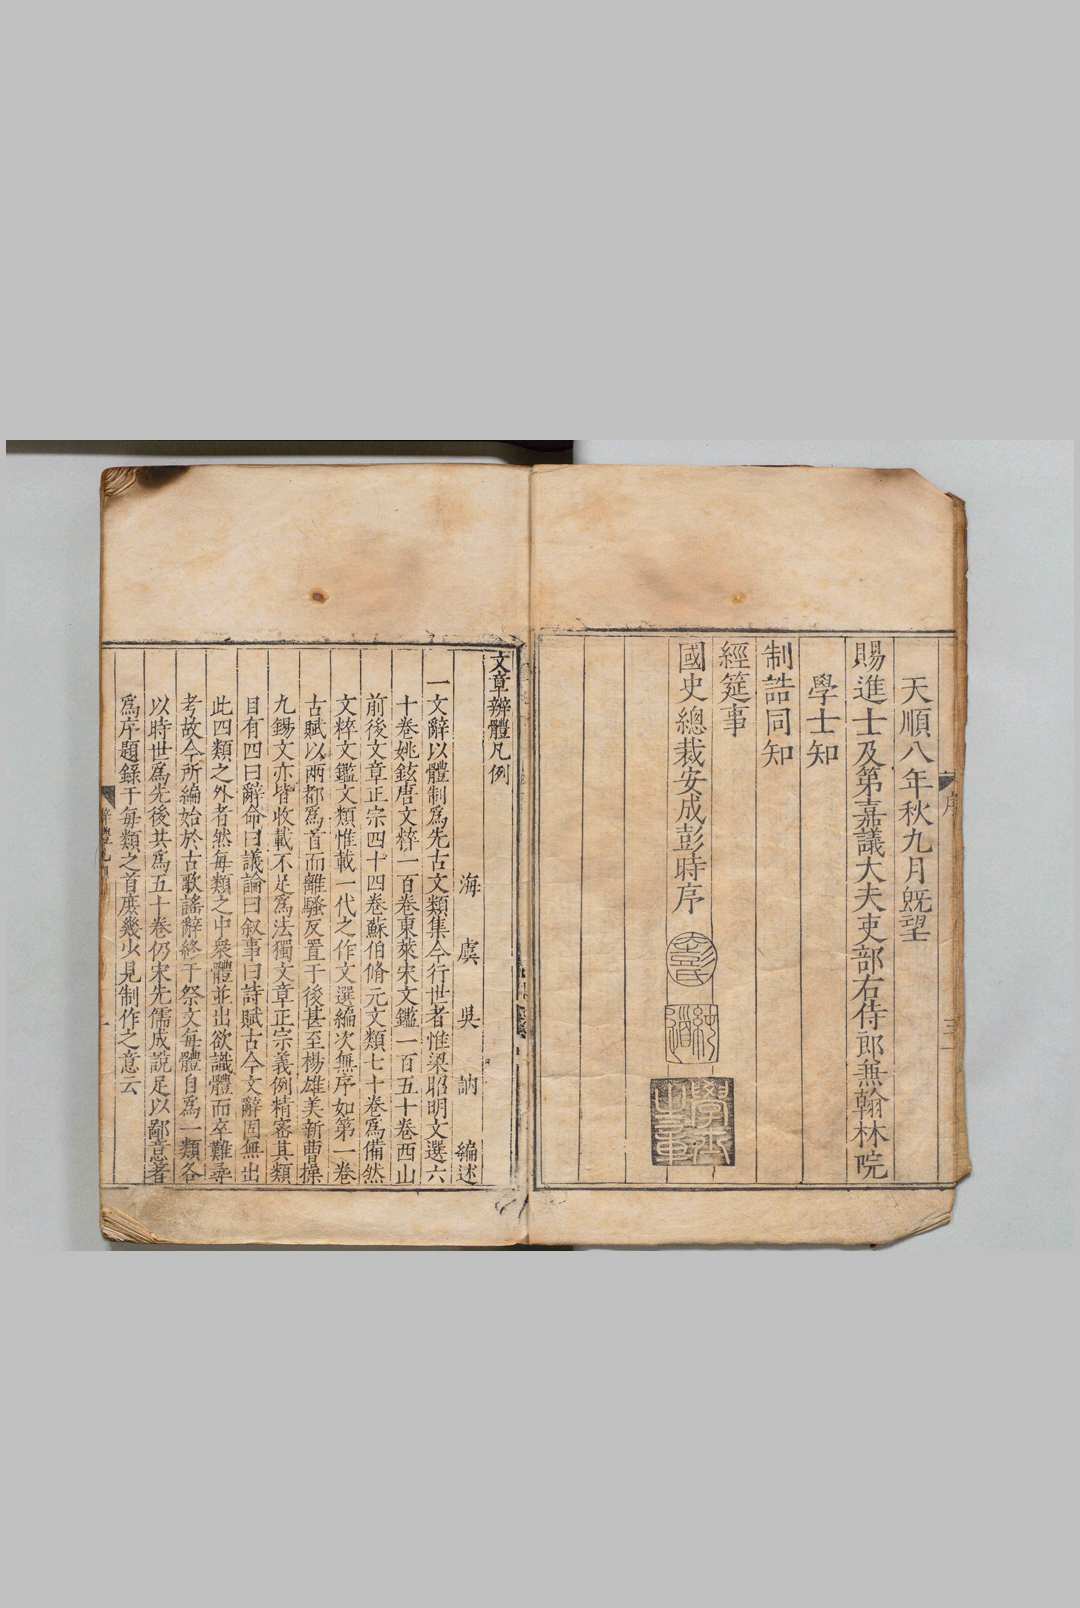 天順八年秋九月旣望
賜進士及第嘉議大夫吏部右侍郎兼翰林院
學士知
制誥同知
經筵事
國史總裁安成彭時序
文章辨體凡例
海虞吳訥編述
一文辭以體制爲先古文類集今行世者惟梁昭明文選六
十卷姚鉉唐文粹一百卷東萊宋文鑑一百五十卷西山
前後文章正宗四十四卷蘇伯脩元文類七十卷爲備然
文粹文鑑文類惟載一代之作文選編次無序如第一卷
古賦以兩都爲首而離騷反置于後甚至楊雄美新曹操
九錫文亦皆收載不足爲法獨文章正宗義例精密其類
目有四曰辭命曰議論曰叙事曰詩賦古今文辭固無出
此四類之外者然每類之中衆體並出欲識體而卒難尋
考故今所編始於古歌謠辭終于祭文每體自爲一類各
以時世爲先後共爲五十卷仍宋先儒成說足以鄙意者
爲序題錄于每類之首庶幾少見制作之意云